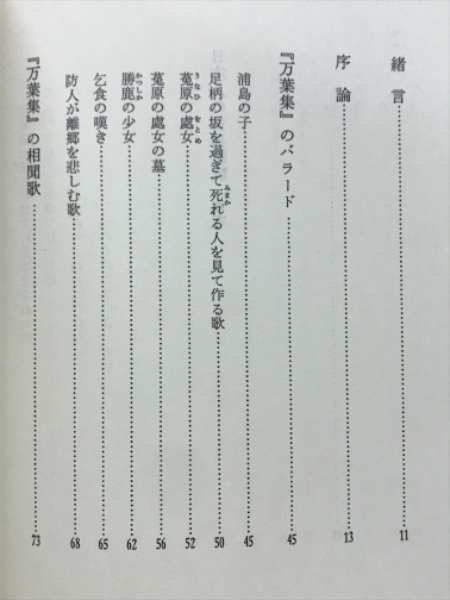 緒言……11
序論……13
『万葉集』のバラード……45
浦島の子……45
足柄の坂を過ぎて死れる人を見て作る歌……50
みまか
菟原の處女……52
うなひ をとめ
菟原の處女の墓……56
勝鹿の少女……62
かつしか
乞食の嘆き……65
防人が離郷を悲しむ歌……68
『万葉集』の相聞歌……73